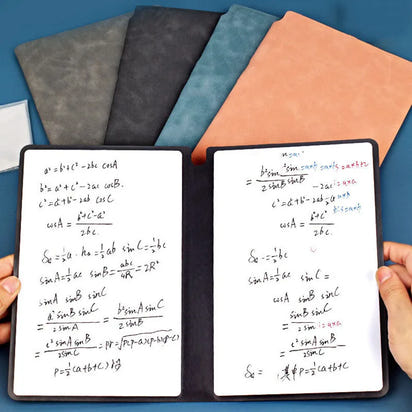 a² = b²+c²-2bc cosA
b² = a²+c²-2ac cosB.
c² = a²+b²-2ab cosC
cosA = b²+c²-a² / 2bc.
S△ = ½a·ha = ½ab sinC = ½bc
sinA = ½ac sinB = abc/4R = 2R²
sinA sinB sinC
= a² sinB sinC / 2sinA = b² sinA sinC / 2sinB
= c² sinA sinB / 2sinC = pr = √p(p-a)(p-b)(p-c)
P = ½(a+b+c)
= b² sin sin / 2 sinB sinB
-2ac
c² = a²+b²-2ab
cosA = b²+c²
S△ = ½bc
sinA = ½ac sinC =
cosA sinB sinC
sinB sinC
2 sin
= c² sinA sinB / 2sinC
S△ = 其中 P = ½(a+b+c)